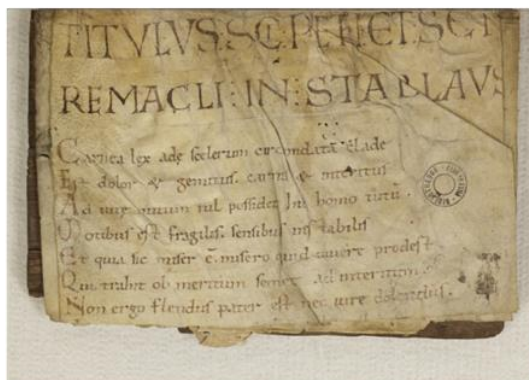 TITVLVS: SCI PETRI: ET: SCI
REMACLI: IN: STABLAVS
Carnea lex adę scelerum circundata clade
Est dolor & gemitus. carnis & interitus
Ad uite nil possidet homo
otibus est fragilis. sensibus instabilis
Et quia sic miser ē. misero quid uiuere prodest
Qui trahit ob meritum semet ad interitum
Non ergo flendus pater est nec uite dolendus.